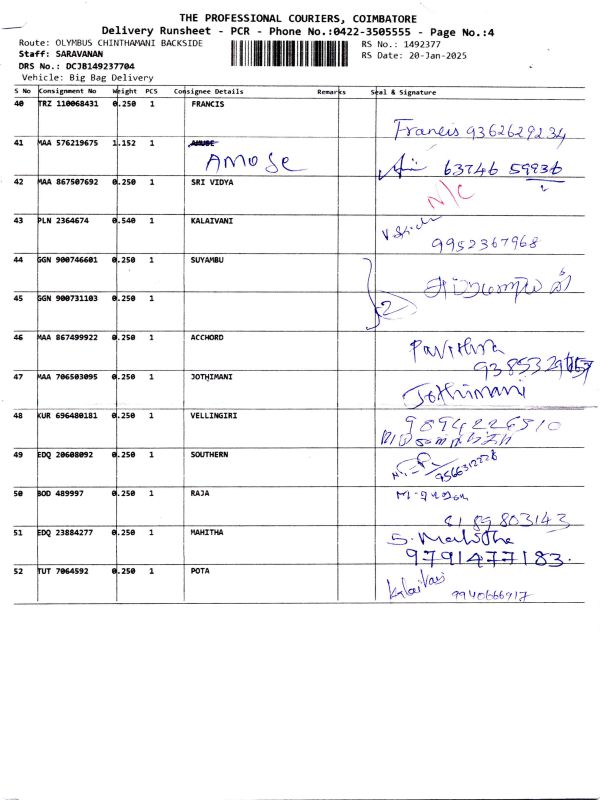 THE PROFESSIONAL COURIERS, COIMBATORE
Delivery Runsheet - PCR - Phone No.:0422-3505555 - Page No.:4
Route: OLYMBUS CHINTHAMANI BACKSIDE RS No.: 1492377
Staff: SARAVANAN RS Date: 20-Jan-2025
DRS No.: DCJB149237704
Vehicle: Big Bag Delivery
S No Consignment No Weight PCS Consignee Details Remarks Seal & Signature
40 TRZ 110068431 0.250 1 FRANCIS
Francis 9362629234
41 MAA 576219675 1.152 1 AMUSE
AMOSE 63746 59936
42 MAA 867507692 0.250 1 SRI VIDYA N/C
43 PLN 2364674 0.540 1 KALAIVANI
9952367968
44 GGN 900746601 0.250 1 SUYAMBU
45 GGN 900731103 0.250 1 2
46 MAA 867499922 0.250 1 ACCHORD Pavithra
47 MAA 706503095 0.250 1 JOTHIMANI
Jothimani
48 KUR 696480181 0.250 1 VELLINGIRI 9894226510
49 EDQ 20608092 0.250 1 SOUTHERN
9566312228
50 BOD 489997 0.250 1 RAJA
8189803143
51 EDQ 23884277 0.250 1 MAHITHA S. Mahitha
9791477183.
52 TUT 7064592 0.250 1 POTA
Kalaivani 9940666917